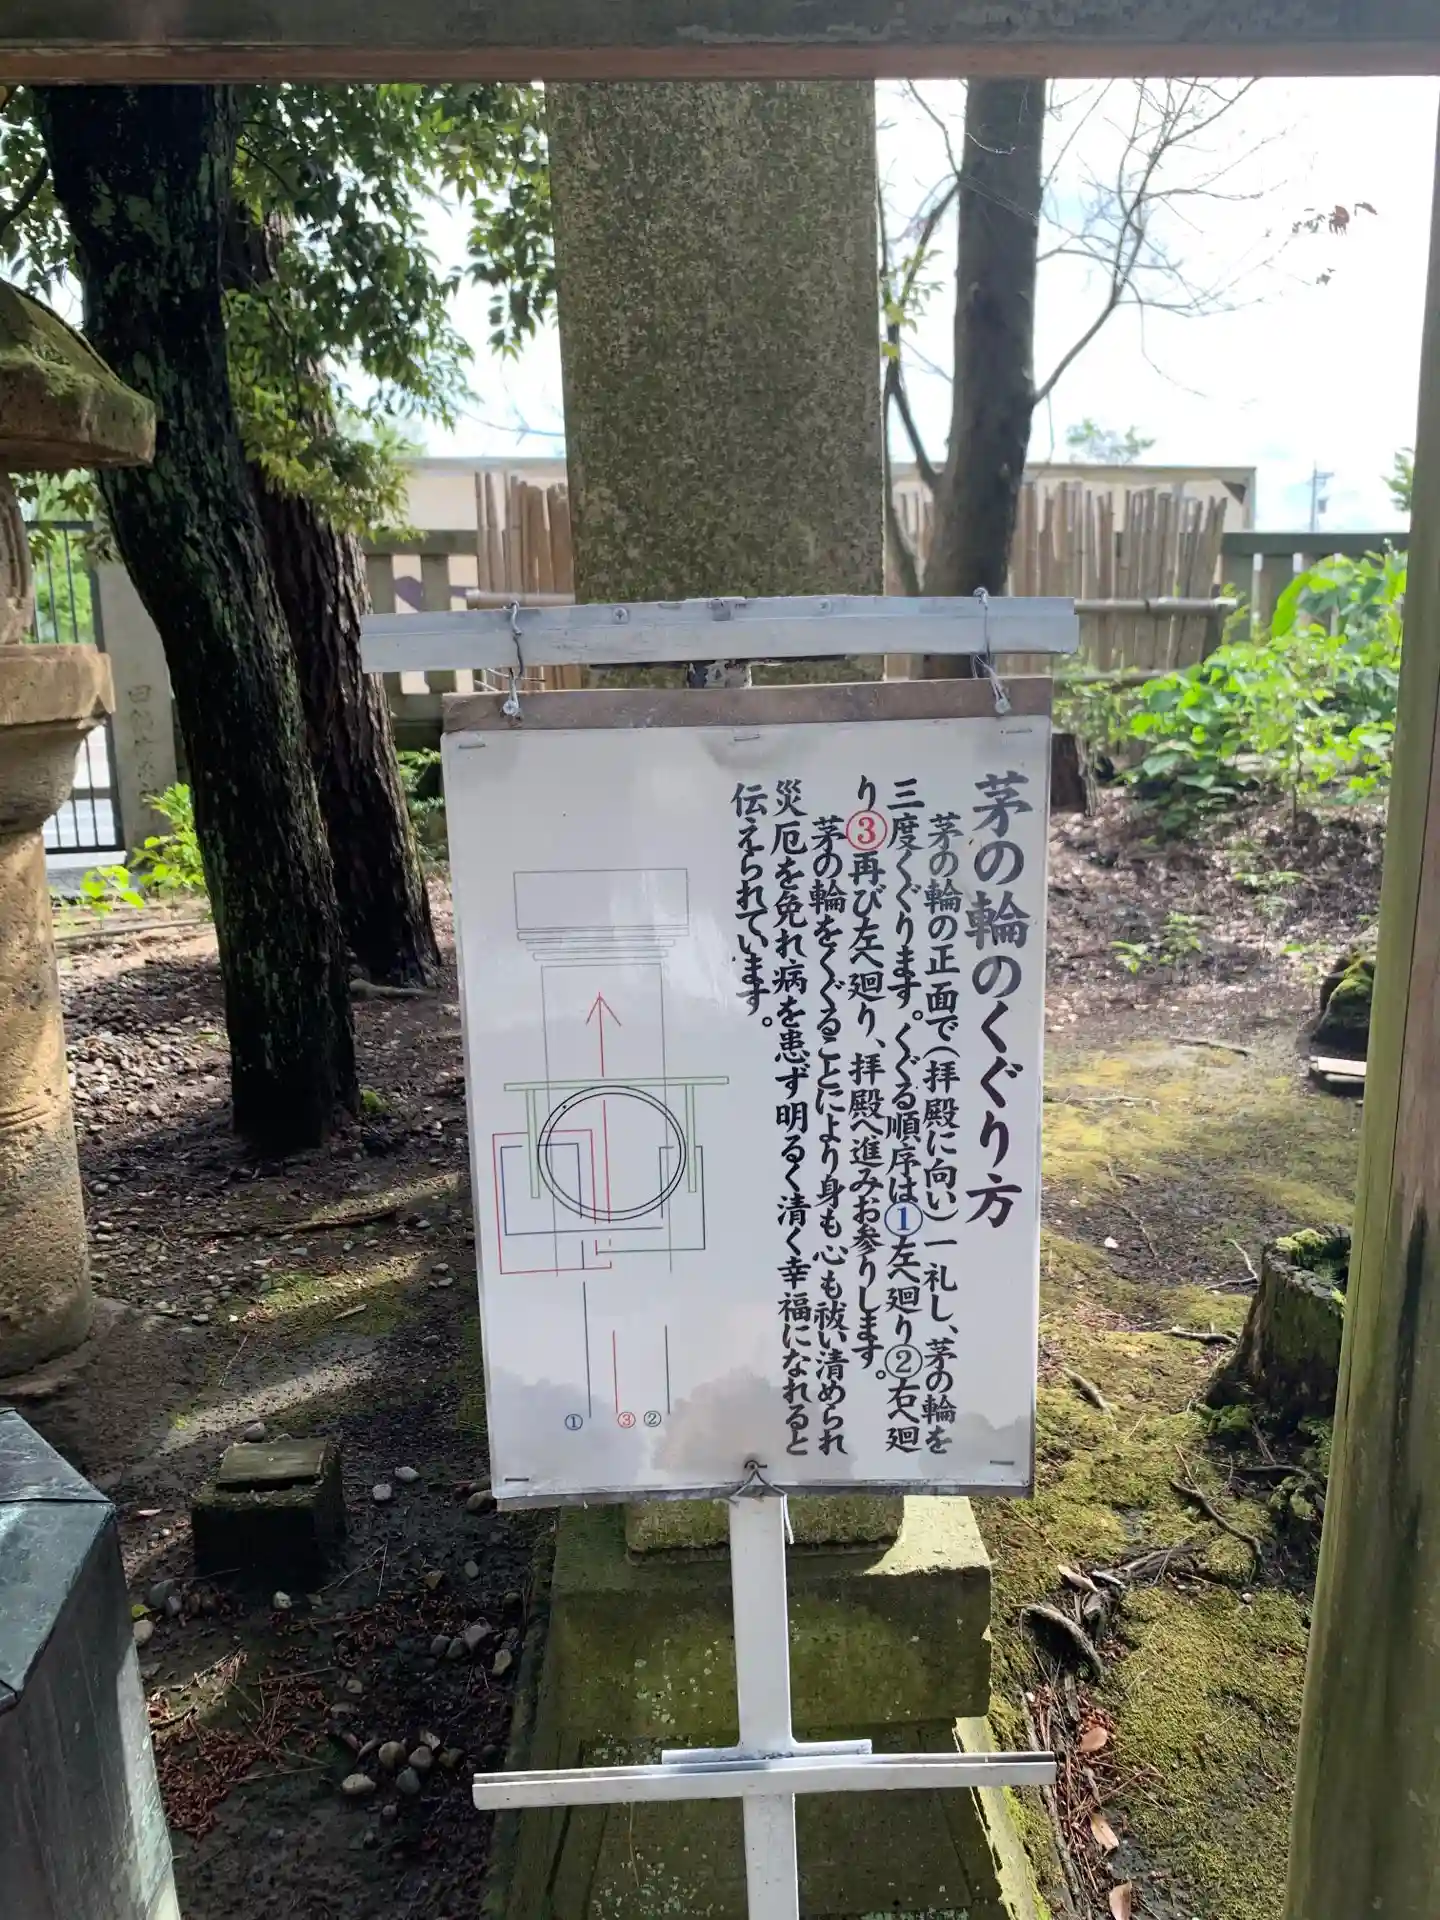 茅の輪のくぐり方
茅の輪の正面で(拝殿に向い)一礼し、茅の輪を
三度くぐります。くぐる順序は①左へ廻り②右へ廻
り③再び左へ廻り、拝殿へ進みお参りします。
茅の輪をくぐることにより身も心も祓い清められ
災厄を免れ病を患ず明るく清く幸福になれると
伝えられています。
① ③ ②